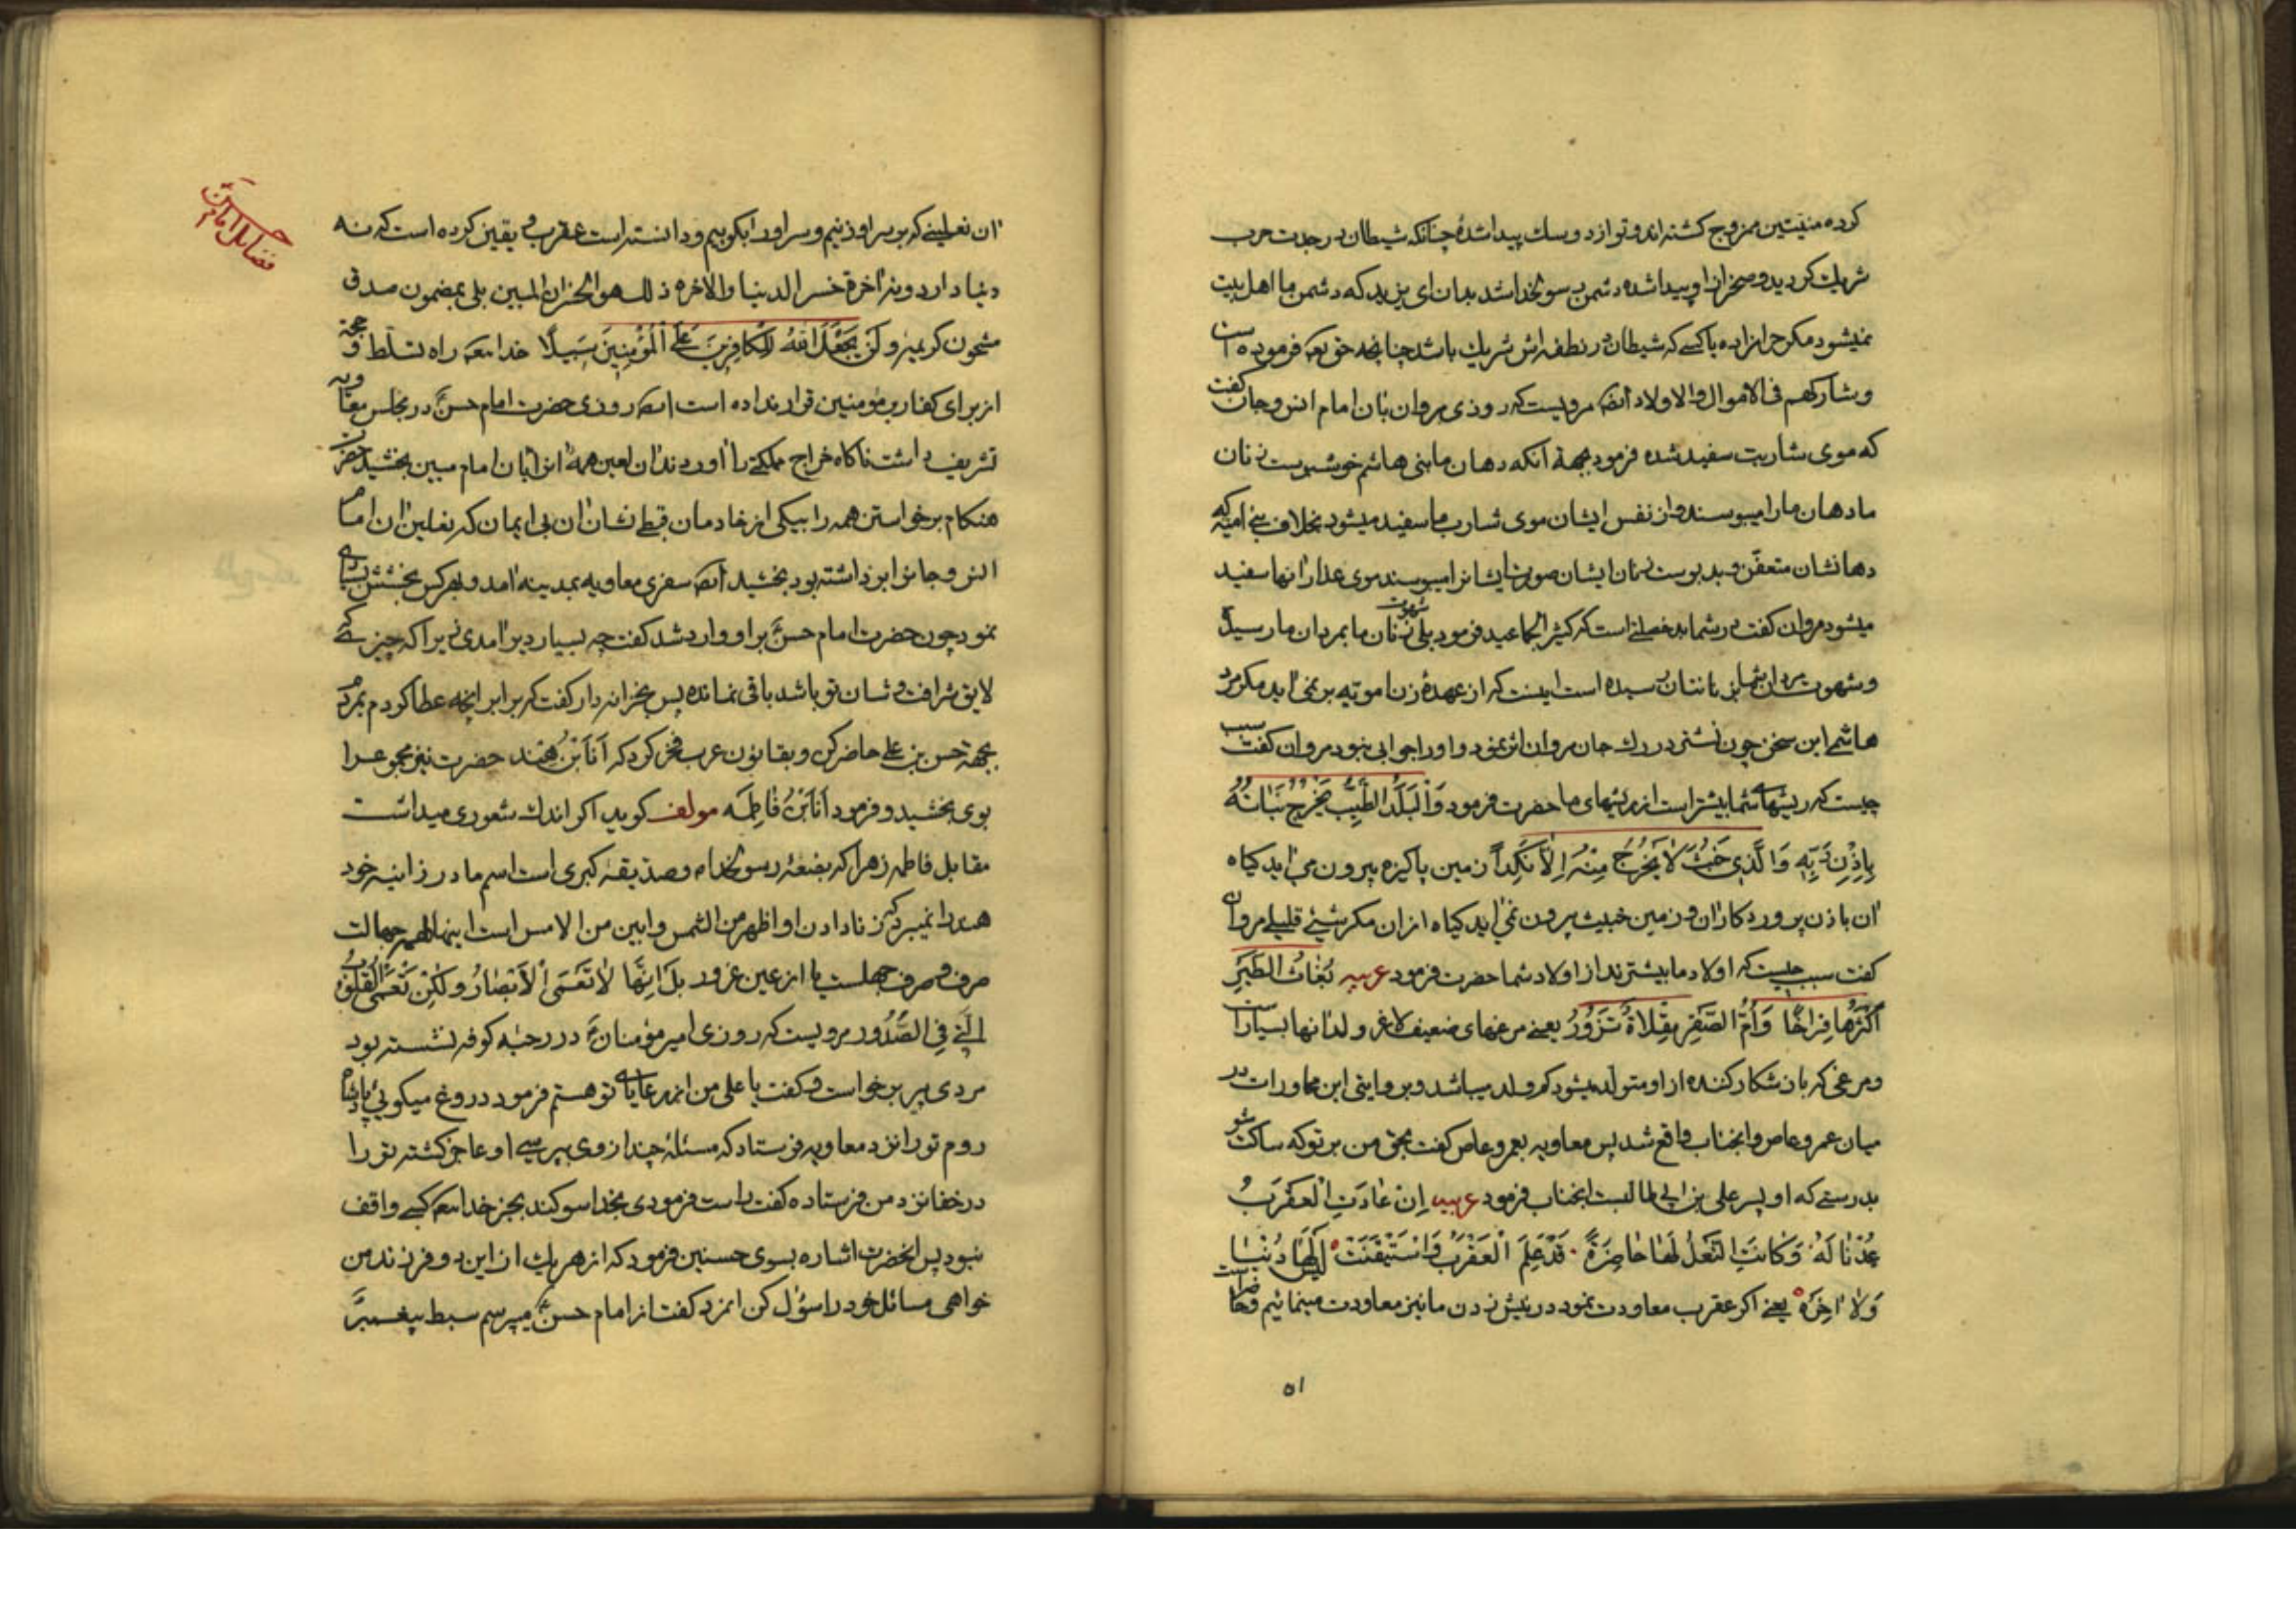 کرده منیتین ممزوج کشته اند و تو از دو سک پیدا شدۀ چنانکه شیطان در جدت حرب
شریک کردید و صخر از او پیدا شده دشمن رسولخدا شد بدان ای یزید که دشمن ما اهل بیت
نمیشود مکر حرامزاده یا کسی که شیطان در نطفه اش شریک باشد چنانچه حق تعه فرموده است
وشارکهم فی الاموال والاولاد ایضه مرویست که روزی مروان بان امام انس و جان گفت
که موی شاربت سفید شده فرمود بجهة آنکه دهان ما بنی هاشم خوشبوست زنان
ما دهان ما را میبوسند و از نفس ایشان موی شارب ما سفید میشود بخلاف بنی امیه که
دهانشان متعفن و بدبوست زنان ایشان صورت ایشانرا میبوسند موی عذار انها سفید
میشود مروان کفت در شما بد خصلتی است که کثیر الجماعید فرمود بلی شهوت زنان ما بمردان ما رسیده
و شهوت مردان شما بزنانتان رسیده است اینست که از عهدۀ زن امویه بر نمی اید مکر مرد
هاشمی این سخن چون نشتر در رک جان مروان اثر نمود و او را جوابی نبود مروان کفت سبب
چیست که ریشهای شما بیشتر است از ریشهای ما حضرت فرمود وَالْبَلَدُ الطَّیِّبُ یَخْرُجُ نَبَاتُهُ
بِاِذْنِ رَبِّهِ وَالَّذِی خَبُثَ لَا یَخْرُجُ مِنْهُ اِلَّا نَکِداً زمین پاکیزه بیرون می اید کیاه
ان باذن پروردکار ان و زمین خبیث بیرون نمی اید کیاه از ان مکر شیئ قلیلی مروان
کفت سبب چیست که اولاد ما بیشترند از اولاد شما حضرت فرمود عربیه بُغَاثُ الطَّیْرِ
اَکْثَرُهَا فِرَاخًا وَاُمُّ الصَّقْرِ مِقْلَاةٌ نَزُوْرُ یعنی مرغهای ضعیف لاغر ولد انها بسیار است
و مرغی که باز شکار کننده از او متولد میشود کم ولد میباشد و بروایتی این محاورات در
میان عمرو عاص و انجناب واقع شد پس معاویه بعمرو عاص کفت بحق من بر تو که ساکت شو
بدرستی که او پسر علی بن ابی طالبست انجناب فرمود عربیه اِنْ عَادَتِ الْعَقْرَبُ
عُدْنَا لَهُ وَکَانَتِ النَّعْلُ لَهَا حَاضِرَةً قَدْ عَلِمَ الْعَقْرَبُ وَاسْتَیْقَنَتْ اَنْ لَیْسَ لَهَا دُنْیَا
وَلَا اخِرَه یعنی اکر عقرب معاودت نمود در نیش زدن ما نیز معاودت مینمائیم و حاضر است
۵۱
فضایل امام حسن
ان نعلینی که بر سر او زنیم و سر او را بکوبیم و دانسته است عقرب و یقین کرده است که نه
دنیا دارد و نه اخرة خسر الدنیا والاخره ذلک هو الخسران المبین بلی بمضمون صدق
مشحون کریمه ولَنْ یَجْعَلَ اللّٰهُ لِلْکَافِرِینَ عَلَی الْمُؤْمِنِینَ سَبِیلًا خدا تعه راه تسلط و حجة
از برای کفار بر مؤمنین قرار نداده است ایضه روزی حضرت امام حسن در مجلس معاویه
تشریف داشت ناکاه خراج مملکتی را اوردند ان لعین همه انرا بان امام مبین بخشید حضرت
هنکام برخواستن همه را بیکی از خادمان قبطی نشان ان بی ایمان که نعلین ان امام
انس و جانرا بر داشته بود بخشید ایضه سفری معاویه بمدینه امد و بهر کس بخشش بسیاری
نمود چون حضرت امام حسن بر او وارد شد کفت چه بسیار دیر امدی زیرا که چیزی که
لایق شرافت و شان تو باشد باقی نمانده پس بخزانه دار کفت که برابر انچه عطا کردم بمردم
بجهة حسن بن علی حاضر کن و بقانون عرب فخر کرد که اَنَا بْنُ هِنْد حضرت نیز مجموع را
بوی بخشید و فرمود اَنَا بْنُ فَاطِمَه مولف کوید اکر اندک شعوری میداشت
مقابل فاطمه زهرا که بضعۀ رسولخداء و صدیقۀ کبری است اسم مادر زانیه خود
هند را نمیبرد که زنا دادن او اظهر من الشمس و ابین من الامس است اینها همه جهالت
صرف و صرف جهلست یا از عین غرور بَلْ اِنَّهَا لَا تَعْمَی الْاَبْصَارُ وَلٰکِنْ تَعْمَی الْقُلُوبُ
الَّتِی فِی الصُّدُور مرویست که روزی امیر مؤمنان در رحبه کوفه نشسته بود
مردی پیر برخواست و کفت یا علی من از رعایای تو هستم فرمود دروغ میکوئی پادشاه
روم تو را نزد معاویه فرستاد که مسئلۀ چند از وی بپرسی او عاجز کشته تو را
در خفا نزد من فرستاده کفت راست فرمودی بخدا سوکند بجز خدا تعه کسی واقف
نبود پس انحضرت اشاره بسوی حسنین فرمود که از هر یک از این دو فرزند من
خواهی مسائل خود را سؤال کن انمرد کفت از امام حسن میپرسم سبط پیغمبر